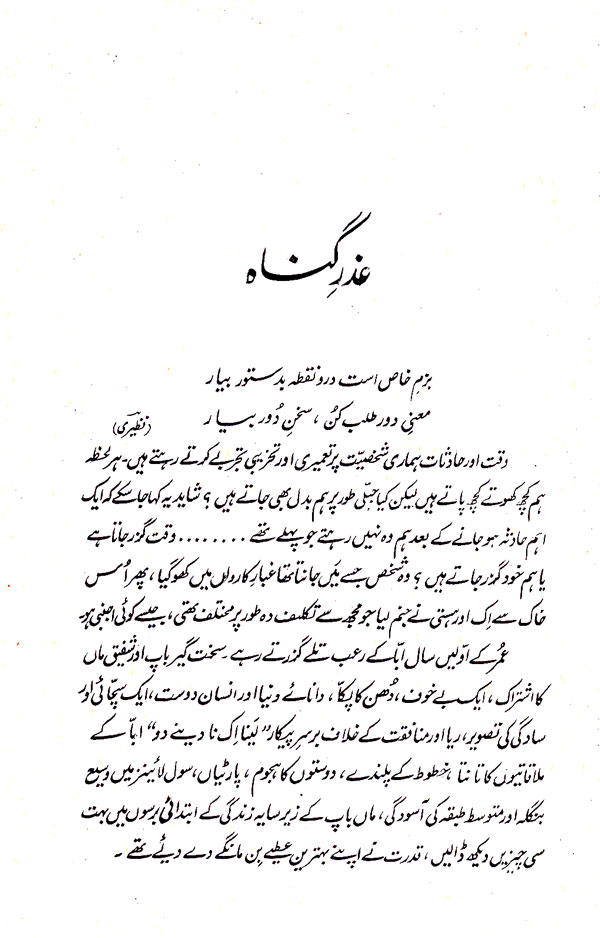 عذرِ گناہ
بزمِ خاص است درو نقطہ بدستور بیار
معنی دور طلب کن ، سخنِ دُور بیار
(نظیریؔ)
وقت اور حادثات ہماری شخصیت پر تعمیری اور تخریبی تجربے کرتے رہتے ہیں۔ ہر لحظہ
ہم کچھ کھوتے کچھ پاتے ہیں لیکن کیا جبلّی طور پر ہم بدل بھی جاتے ہیں ؟ شاید یہ کہا جا سکے کہ ایک
اہم حادثہ ہو جانے کے بعد ہم وہ نہیں رہتے جو پہلے تھے ........ وقت گزر جاتا ہے
یا ہم خود گزر جاتے ہیں ؟ وہ شخص جسے میں جانتا تھا غبارِ کارواں میں کھو گیا ، پھر اُس
خاک سے اِک اور ہستی نے جنم لیا جو مجھ سے تکلیف دہ طور پر مختلف تھی ، جیسے کوئی اجنبی ہو۔
عُمر کے اوّلیں سال ابّا کے رعب تلے گزرتے رہے ۔ سخت گیر باپ اور شفیق ماں
کا اشتراک ، ایک بے خوف ، دُھن کا پکّا ، دانائے دنیا اور انسان دوست ، ایک سچّائی اور
سادگی کی تصویر ، ریا اور منافقت کے خلاف برسرِ پیکار "لینا اِک نا دینے دو" ابّا کے
ملاقاتیوں کا تانتا ، خطوط کے پلندے ، دوستوں کا ہجوم ، پارٹیاں ، سول لائینز میں وسیع
بنگلہ اور متوسط طبقہ کی آسودگی ، ماں باپ کے زیرِ سایہ زندگی کے ابتدائی برسوں میں بہت
سی چیزیں دیکھ ڈالیں ، قدرت نے اپنے بہترین عطیے بِن مانگے دے دیئے تھے ۔